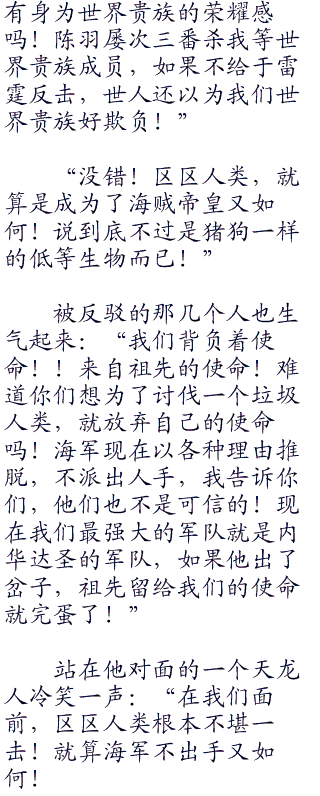 有身为世界贵族的荣耀感
吗！陈羽屡次三番杀我等世
界贵族成员，如果不给于雷
霆反击，世人还以为我们世
界贵族好欺负！”
“没错！区区人类，就
算是成为了海贼帝皇又如
何！说到底不过是猪狗一样
的低等生物而已！”
被反驳的那几个人也生
气起来：“我们背负着使
命！！来自祖先的使命！难
道你们想为了讨伐一个垃圾
人类，就放弃自己的使命
吗！海军现在以各种理由推
脱，不派出人手，我告诉你
们，他们也不是可信的！现
在我们最强大的军队就是内
华达圣的军队，如果他出了
岔子，祖先留给我们的使命
就完蛋了！”
站在他对面的一个天龙
人冷笑一声：“在我们面
前，区区人类根本不堪一
击！就算海军不出手又如
何！